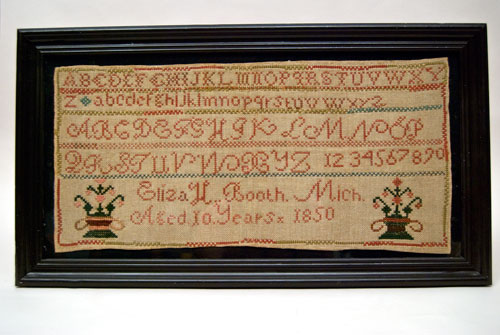 ABCDEFGHIJKLMNOPQRSTUVWXY
Z abcdefghijklmnopqrstuvwxyz
ABCDEFGHIJKLMNOP
QRSTUVWXYZ 1234567890
Eliza H. Booth. Mich.
Aged 10. Years. 1850